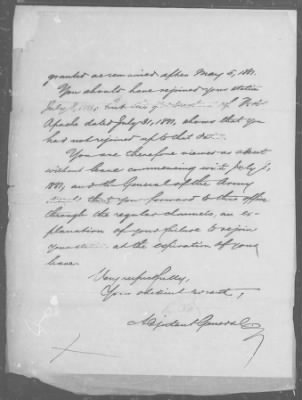 granted as remained after May 5, 1881.
You should have rejoined your station
July 1, 1881, but the of Fort
Apache dated July 31, 1881, shows that you
had not rejoined up to that date.
You are therefore viewed as absent
without leave commencing with July 1,
1881, and the General of the Army
that you forward to this office
through the regular channels, an ex-
planation of your failure to rejoin
your station at the expiration of your
leave.
Very respectfully,
Your obedient servant,
Adjutant General